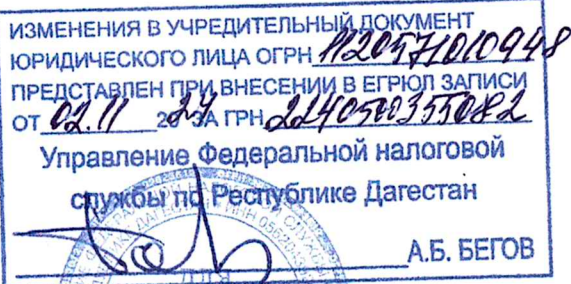 ИЗМЕНЕНИЯ В УЧРЕДИТЕЛЬНЫЙ ДОКУМЕНТ
ЮРИДИЧЕСКОГО ЛИЦА ОГРН 1120571010948
ПРЕДСТАВЛЕН ПРИ ВНЕСЕНИИ В ЕГРЮЛ ЗАПИСИ
ОТ 02.11 2024 ЗА ГРН 2240500355082
Управление Федеральной налоговой
службы по Республике Дагестан
А.Б. БЕГОВ
ДЛЯ